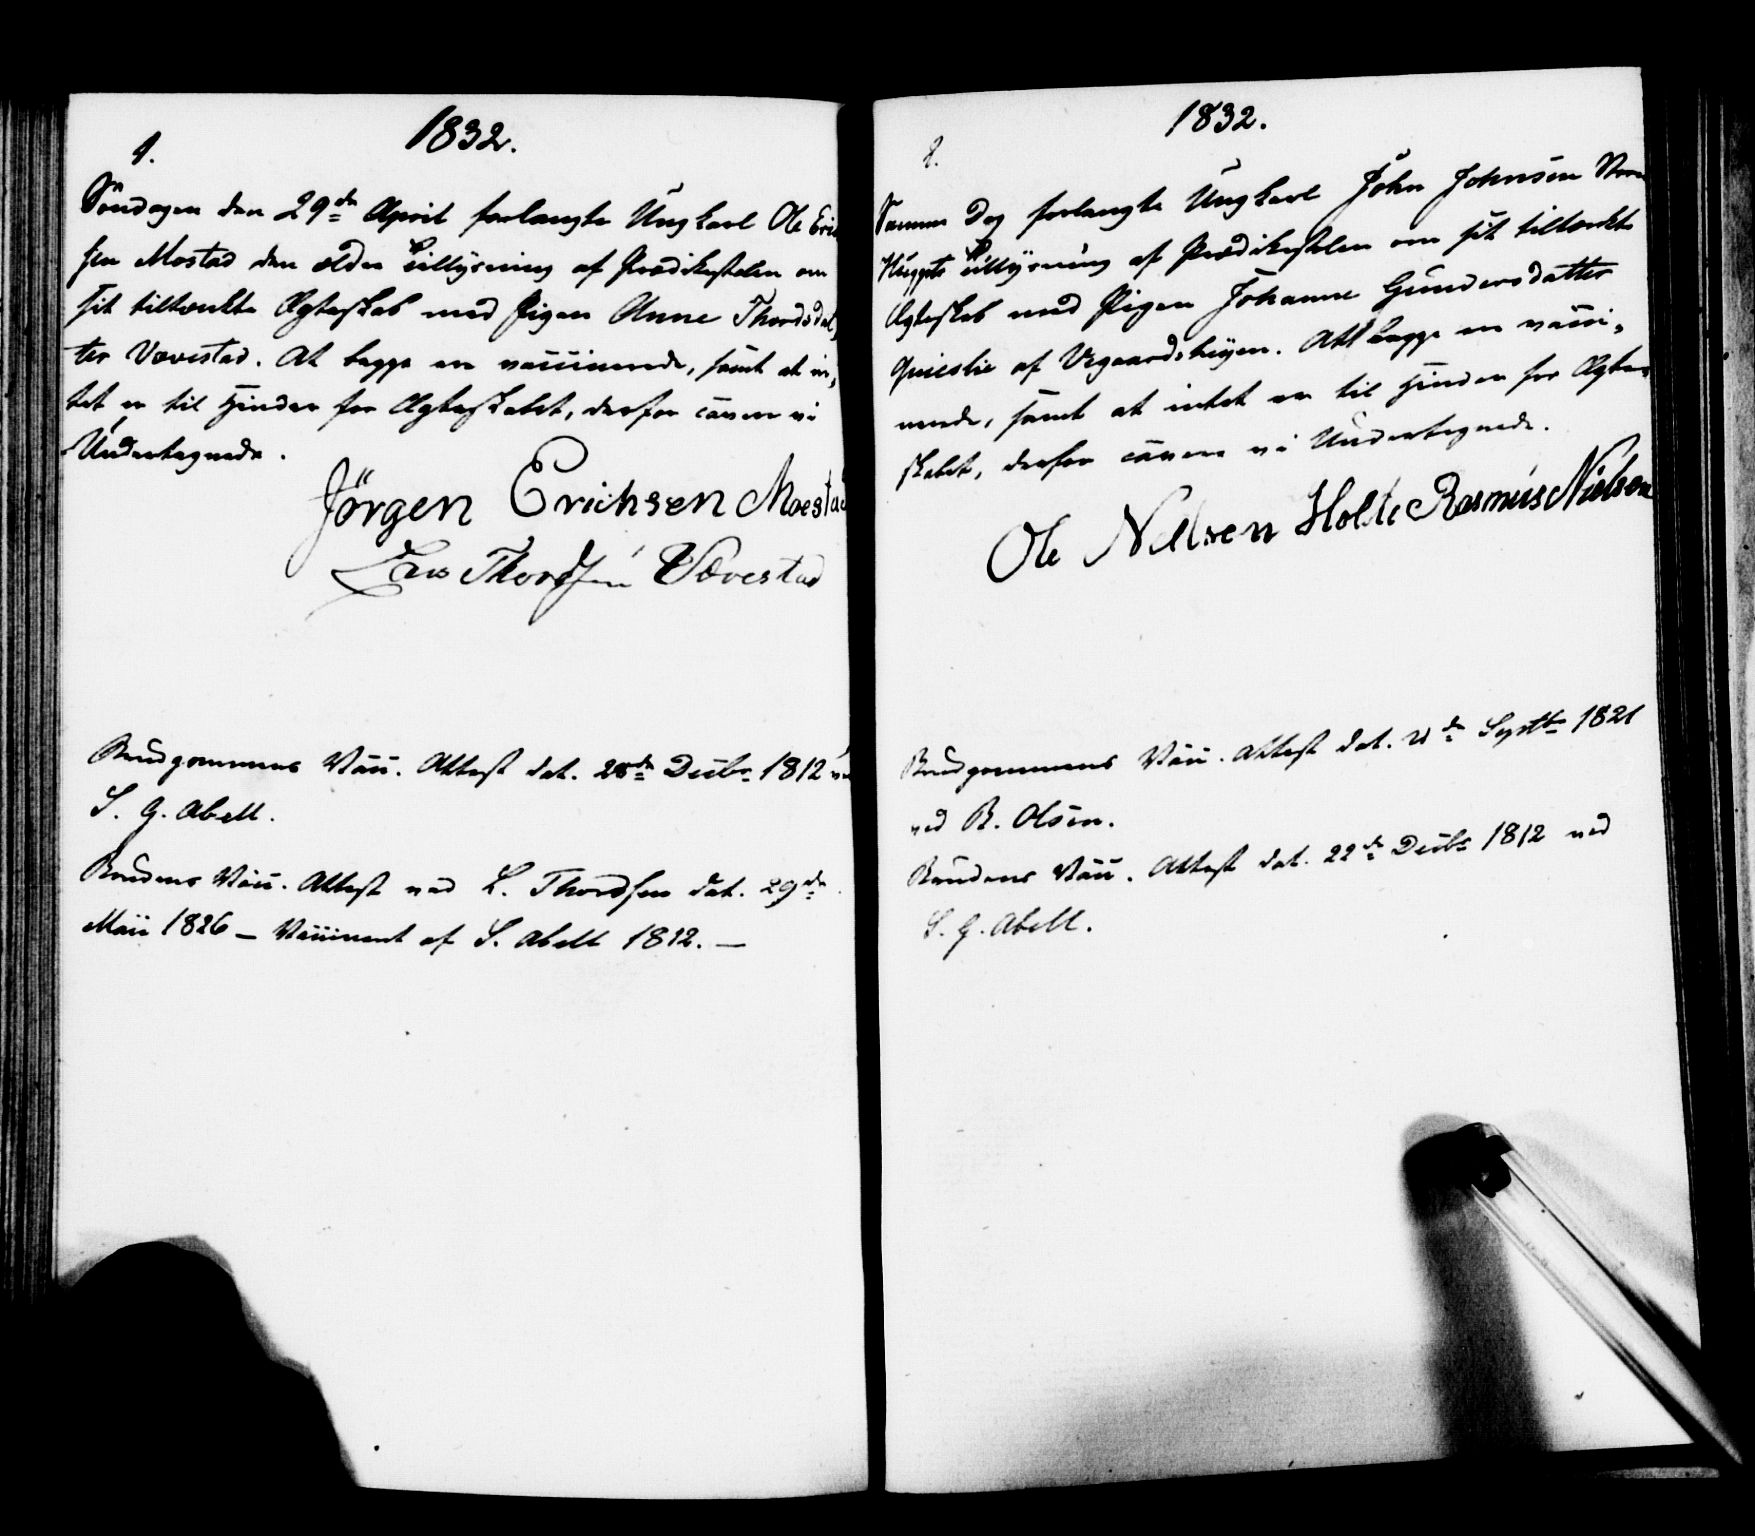 1832.
1.
Søndagen den 29de April forlangte Ungkarl Ole Eric
sen Mostad den ældre Lillysning af Prædikestolen om
sit tiltænkte Ægteskab med Pigen Anne Thordsdat,
ter Vævestad. At begge ere vaccinerede, samt at in,
tet er til Hinder for Ægteskabet, derfor cavere vi
Undertegnede.
Jörgen Erichsen Moestad
Lars Thordsen Vævestad
Brudgommens Vacc. Attest dat. 28de Decbr 1812 ved
S. G. Abell.
Brudens Vacc. Attest ved L. Thordsen dat. 29de
Maii 1826 – Vaccineret af S. Abell 1812. –
1832.
2.
Samme Dag forlangte Ungkarl John Johnsen
Lillysning af Prædikestolen om sit tiltænkte
Ægteskab med Pigen Johanne Gundersdatter
af Vegaardsheyen. Att begge ere vacci,
nerede, samt at intet er til Hinder for Ægte,
skabet, derfor cavere vi Undertegnede.
Ole Nilsen Holte Rasmus Nielsen
Brudgommens Vacc. Attest dat. de Septbr 1821
ved B. Olsen.
Brudens Vacc. Attest dat. 22de Decbr 1812 ved
S. G. Abell.